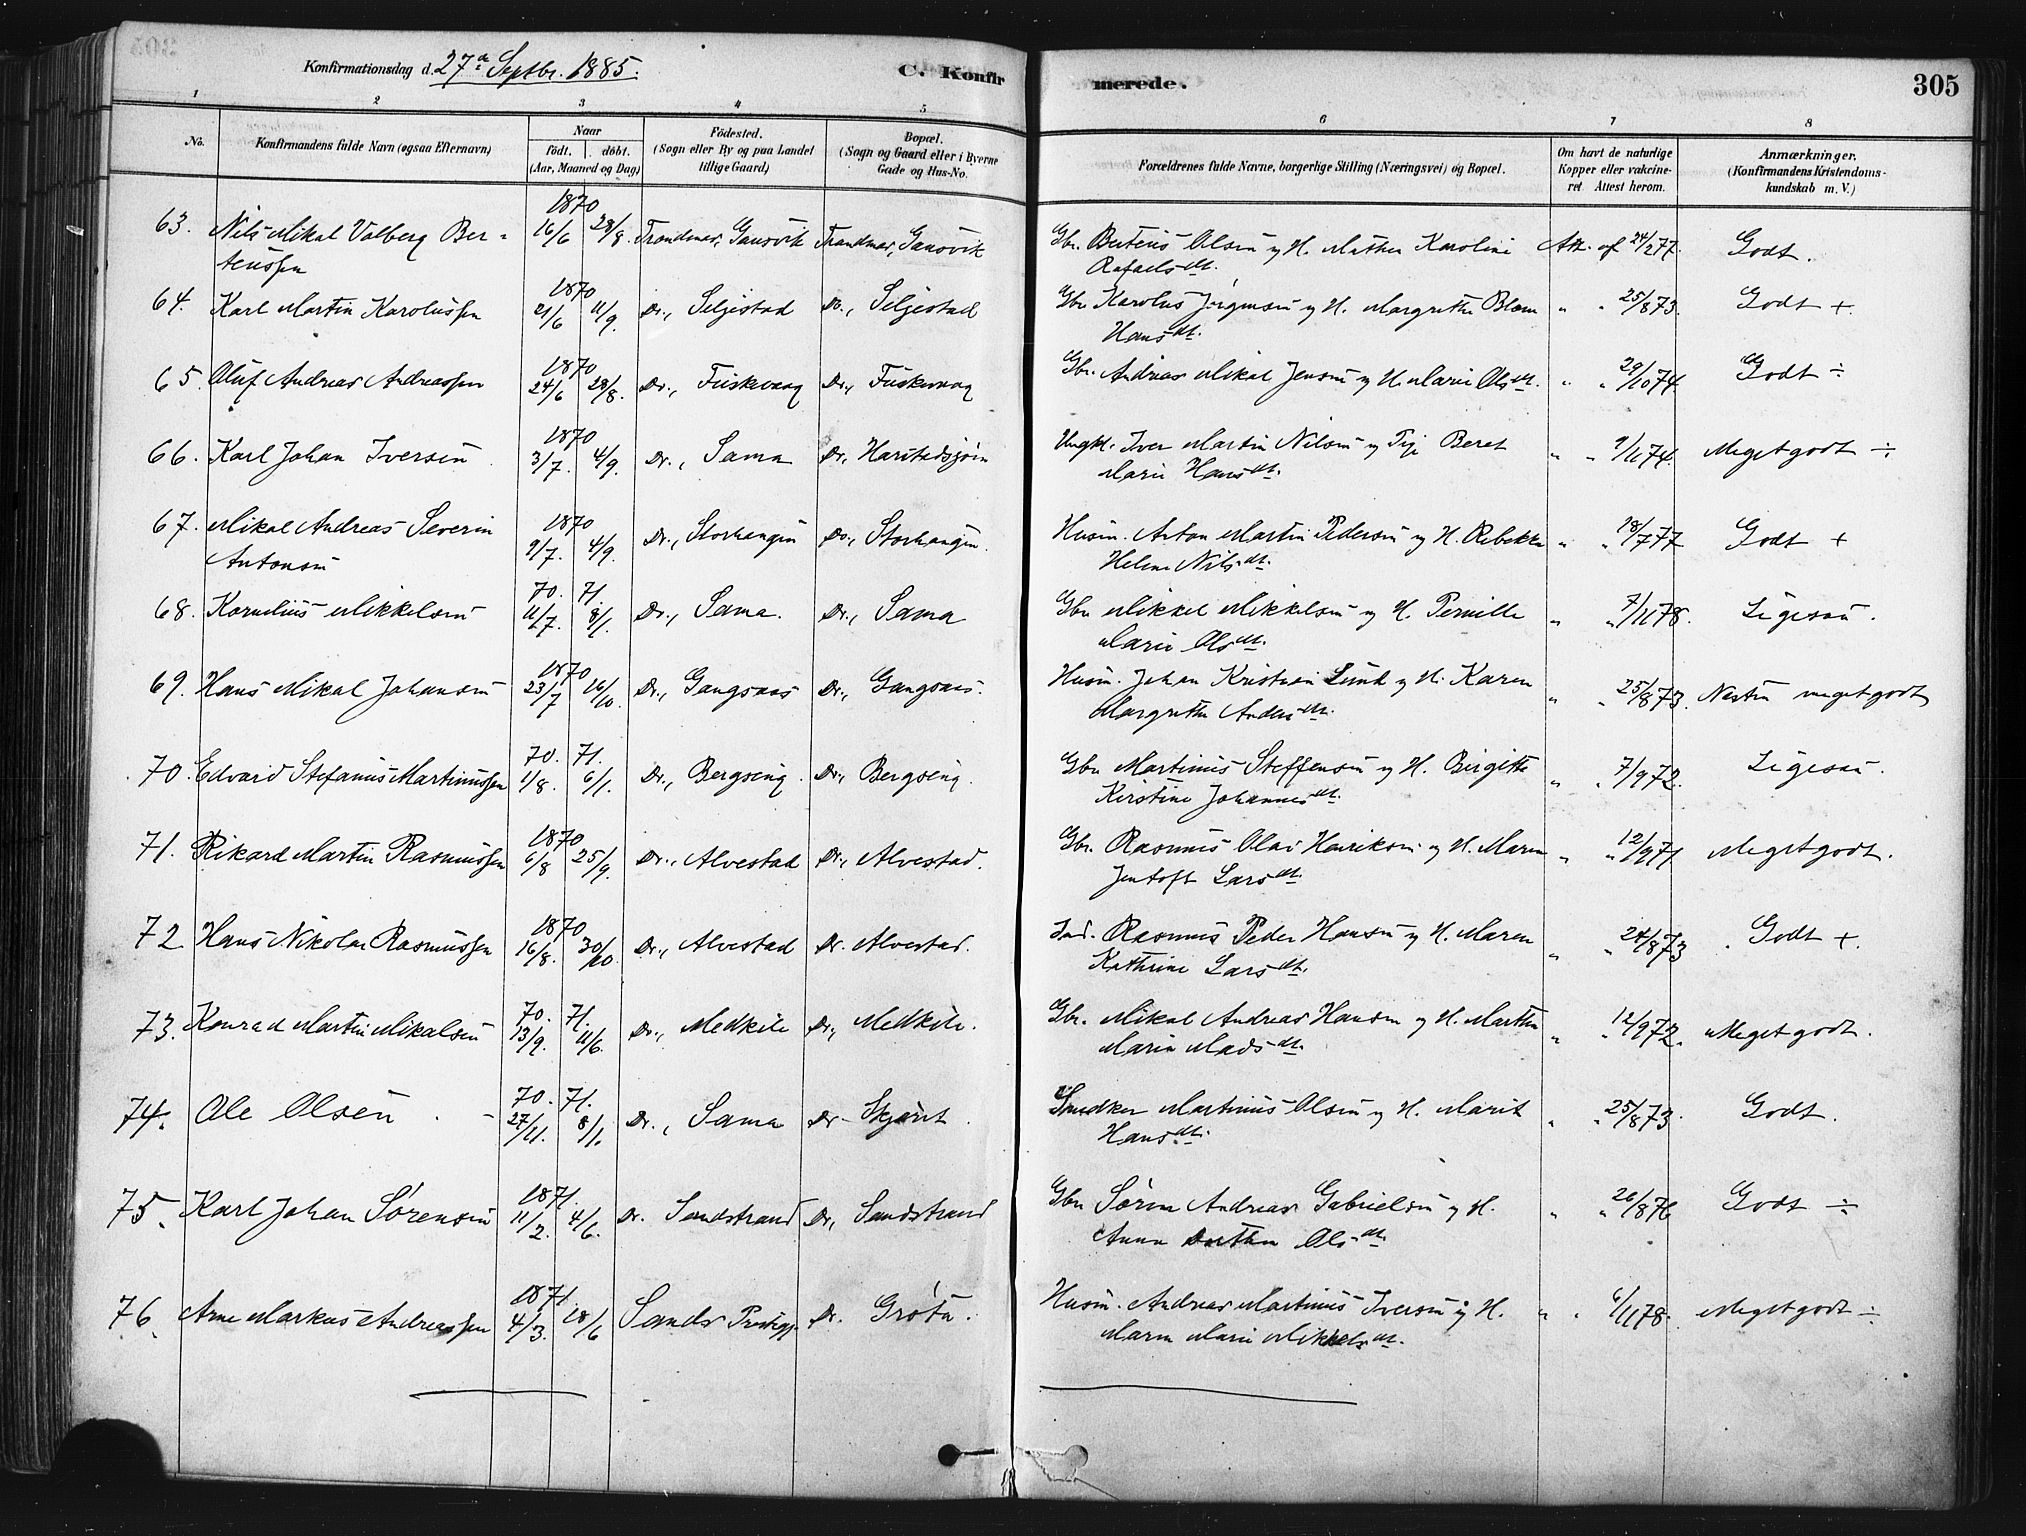 Konfirmationsdag d. 27de Septbr. 1885.
C. Konfirmerede.
305
1 2 3 4 5 6 7 8
No.
Konfirmandens fulde Navn (ogsaa Efternavn)
Naar
födt. döbt.
(Aar, Maaned og Dag)
Födested.
(Sogn eller By og paa Landet
tillige Gaard)
Bopæl.
(Sogn og Gaard eller i Byerne
Gade og Hus-No.
Forældrenes fulde Navne, borgerlige Stilling (Næringsvei) og Bopæl.
Om havt de naturlige
Kopper eller vakcine-
ret. Attest herom.
Anmærkninger.
(Konfirmandens Kristendoms-
kundskab m. V.)
1870
63. Nils Mikal Valberg Ber- 16/6 28/8. Trondenes, Gansvik Trondenes, Gansvik Gbr. Berteus Olsen og H. Mathea Karolini Att. af 24/2 77. Godt.
teussen Rafaelsdt.
1870
64. Karl Martin Karolussen 21/6 11/9. Do., Seljestad Do., Seljestad Gbr Karolus Jörgensen og H. Margrethe Blom " " 25/8 73. Godt +
Hansdt.
1870
65. Oluf Andreas Andreassen 24/6 28/8. Do., Fuskevaag Do., Fuskevaag Gbr. Andreas Mikal Jensen og H. Marie Olsdt. " " 29/10 74. Godt ÷
1870
66. Karl Johan Iversen 3/7. 4/9. Do., Sama Do., Harstadsjöen Ungkl. Iver Martin Nilsen og Pige Beret " " 9/11 74. Meget godt ÷
Marie Hansdt.
1870
67. Mikal Andreas Severin 9/7. 4/9. Do., Storhaugen Do., Storhaugen. Husm. Anton Martin Pedersen og H. Rebekka " " 18/7 77 Godt +
Antonsen Helene Nilsdt.
70. 71.
68. Kornelius Mikkelsen 11/7. 8/1. Do., Sama. Do., Sama Gbr Mikkel Mikkelsen og H. Pernille " " 7/11 78. Ligesaa.
Marie Olsdt.
1870
69. Hans Mikal Johansen 23/7 16/10. Do., Gangsaas Do., Gangsaas. Husm. Johan Kristian Lund og H. Karen " " 25/8 73. Næsten meget godt
Margrethe Andersdt.
70. 71.
70. Edvard Stefanus Martinussen 1/8. 6/1. Do., Bergseng. Do., Bergseng. Gbr Martinus Steffensen og H. Birgitte " " 7/9 72. Ligesaa.
Kirstine Johannesdt.
1870
71. Rikard Martin Rasmussen 6/8 25/9. Do., Alvestad Do., Alvestad. Gbr. Rasmus Olai Henriksen og H. Maren " " 12/9 71. Meget godt.
Jentoft Larsdt.
1870
72 Hans Nikolai Rasmussen 16/8. 30/10. Do., Alvestad Do. Alvestad. Ind. Rasmus Peder Hansen og H. Maren " " 24/8 73 Godt +.
Kathrine Larsdt.
70. 71.
73. Konrad Martin Mikalsen 13/9. 11/6. Do., Medkile Do., Medkile. Gbr. Mikal Andreas Hansen og H. Marthe " " 12/9 72. Meget godt.
Marie Madsdt.
70. 71.
74. Ole Olsen 27/11. 8/1. Do., Sama Do. Martinus Olsen og H. Marit " " 25/8 73. Godt.
Hansdt.
1871.
75. Karl Johan Sørensen 11/2. 4/6. Do. Sandstrand Do., Sandstrand Gbr Sören Andreas Gabrielsen og H. " " 26/8 76 Godt ÷
Anna Dorthea Olsdt.
1871.
76. Arne Markus Andreassen 4/3. 18/6 Sands Prestegj. Do. Gröta. Husm. Andreas Martinus Iversen og H. " " 6/11 78. Meget godt ÷
Maren Marie Mikkelsdt.